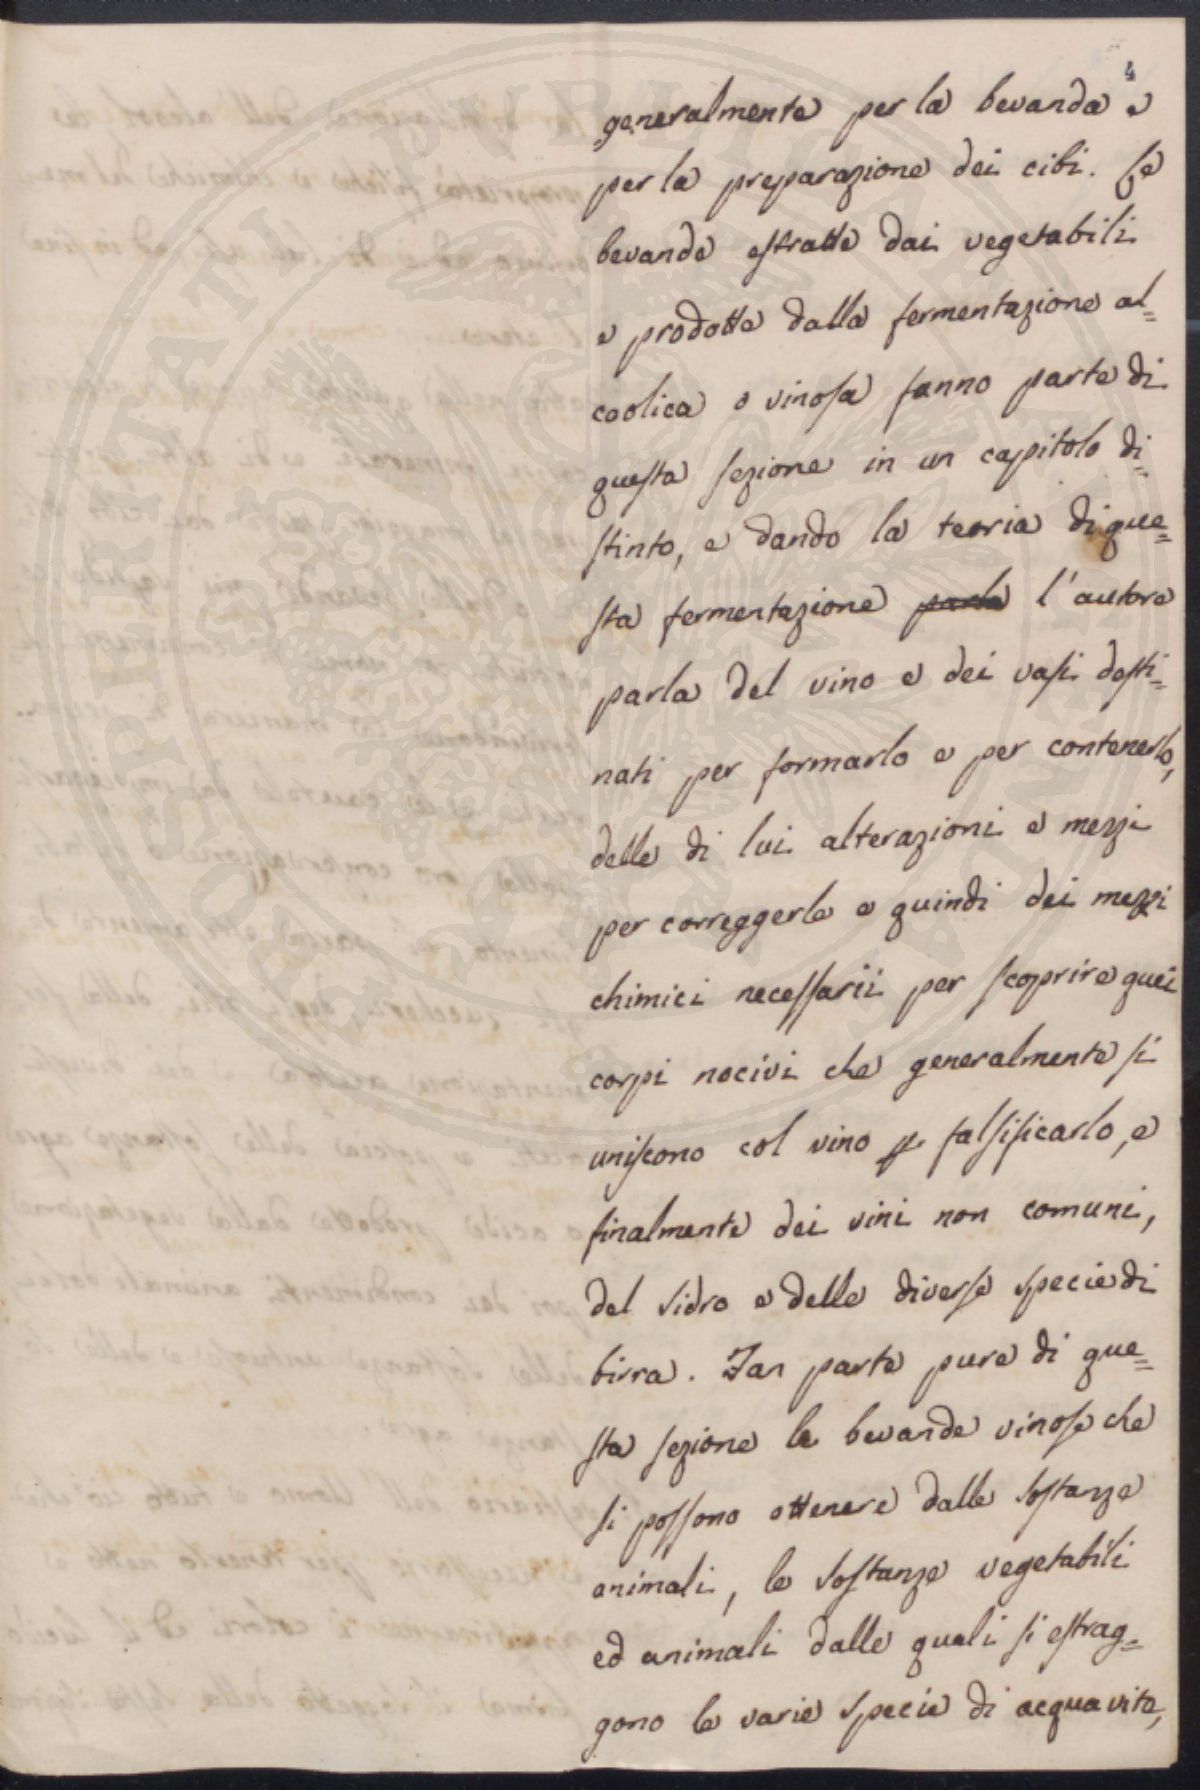 4
generalmente per la bevanda e
per la preparazione dei cibi. Le
bevande estratte dai vegetabili
e prodotte dalla fermentazione al=
coolica o vinosa fanno parte di
questa sezione in un capitolo di=
stinto, e dando la teoria di que=
sta fermentazione parla l'autore
parla del vino e dei vasi desti=
nati per formarlo e per contenerlo,
delle di lui alterazioni e mezzi
per correggerle e quindi dei mezzi
chimici necessarii per scoprire quei
corpi nocivi che generalmente si
uniscono col vino p falsificarlo, e
finalmente dei vini non comuni,
del sidro e delle diverse specie di
birra. Fan parte pure di que=
sta sezione le bevande vinose che
si possono ottenere dalle sostanze
animali, le sostanze vegetabili
ed animali dalle quali si estrag=
gono le varie specie di acquavite,
PROSPERITATI PUBLICAE